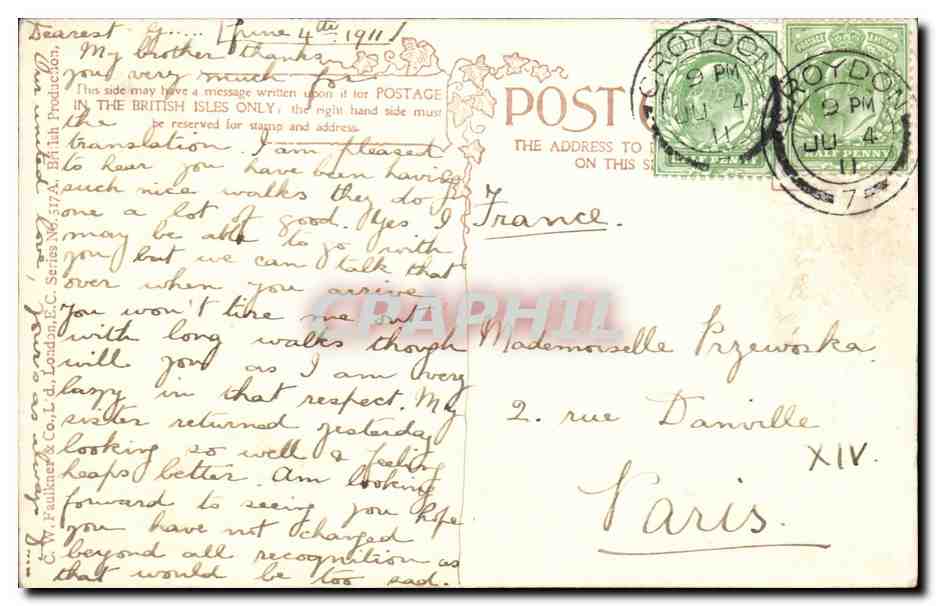 Dearest G..... [June 4th 1911]
My brother thanks
you very much for
the
translation. I am pleased
to hear you have been having
such nice walks they do
one a lot of good. Yes I
may be able to go with
you but we can talk that
over when you arrive
You won't tire me out
with long walks though
will you as I am very
lazy in that respect. My
sister returned yesterday
looking so well & feeling
heaps better. Am looking
forward to seeing you hope
you have not changed
beyond all recognition as
that would be too sad.
love, yours as always
This side may have a message written upon it for POSTAGE
IN THE BRITISH ISLES ONLY; the right hand side must
be reserved for stamp and address.
C. W. Faulkner & Co., Ltd., London, E.C. Series No. 517A. British Production.
POST C
THE ADDRESS TO
ON THIS S
CROYDON
9 PM
JU 4
11
HALF PENNY
CROYDON
9 PM
JU 4
11
7
HALF PENNY
France.
Mademoiselle Przewóska
2. rue Danville
XIV.
Paris.
CRAPHIL